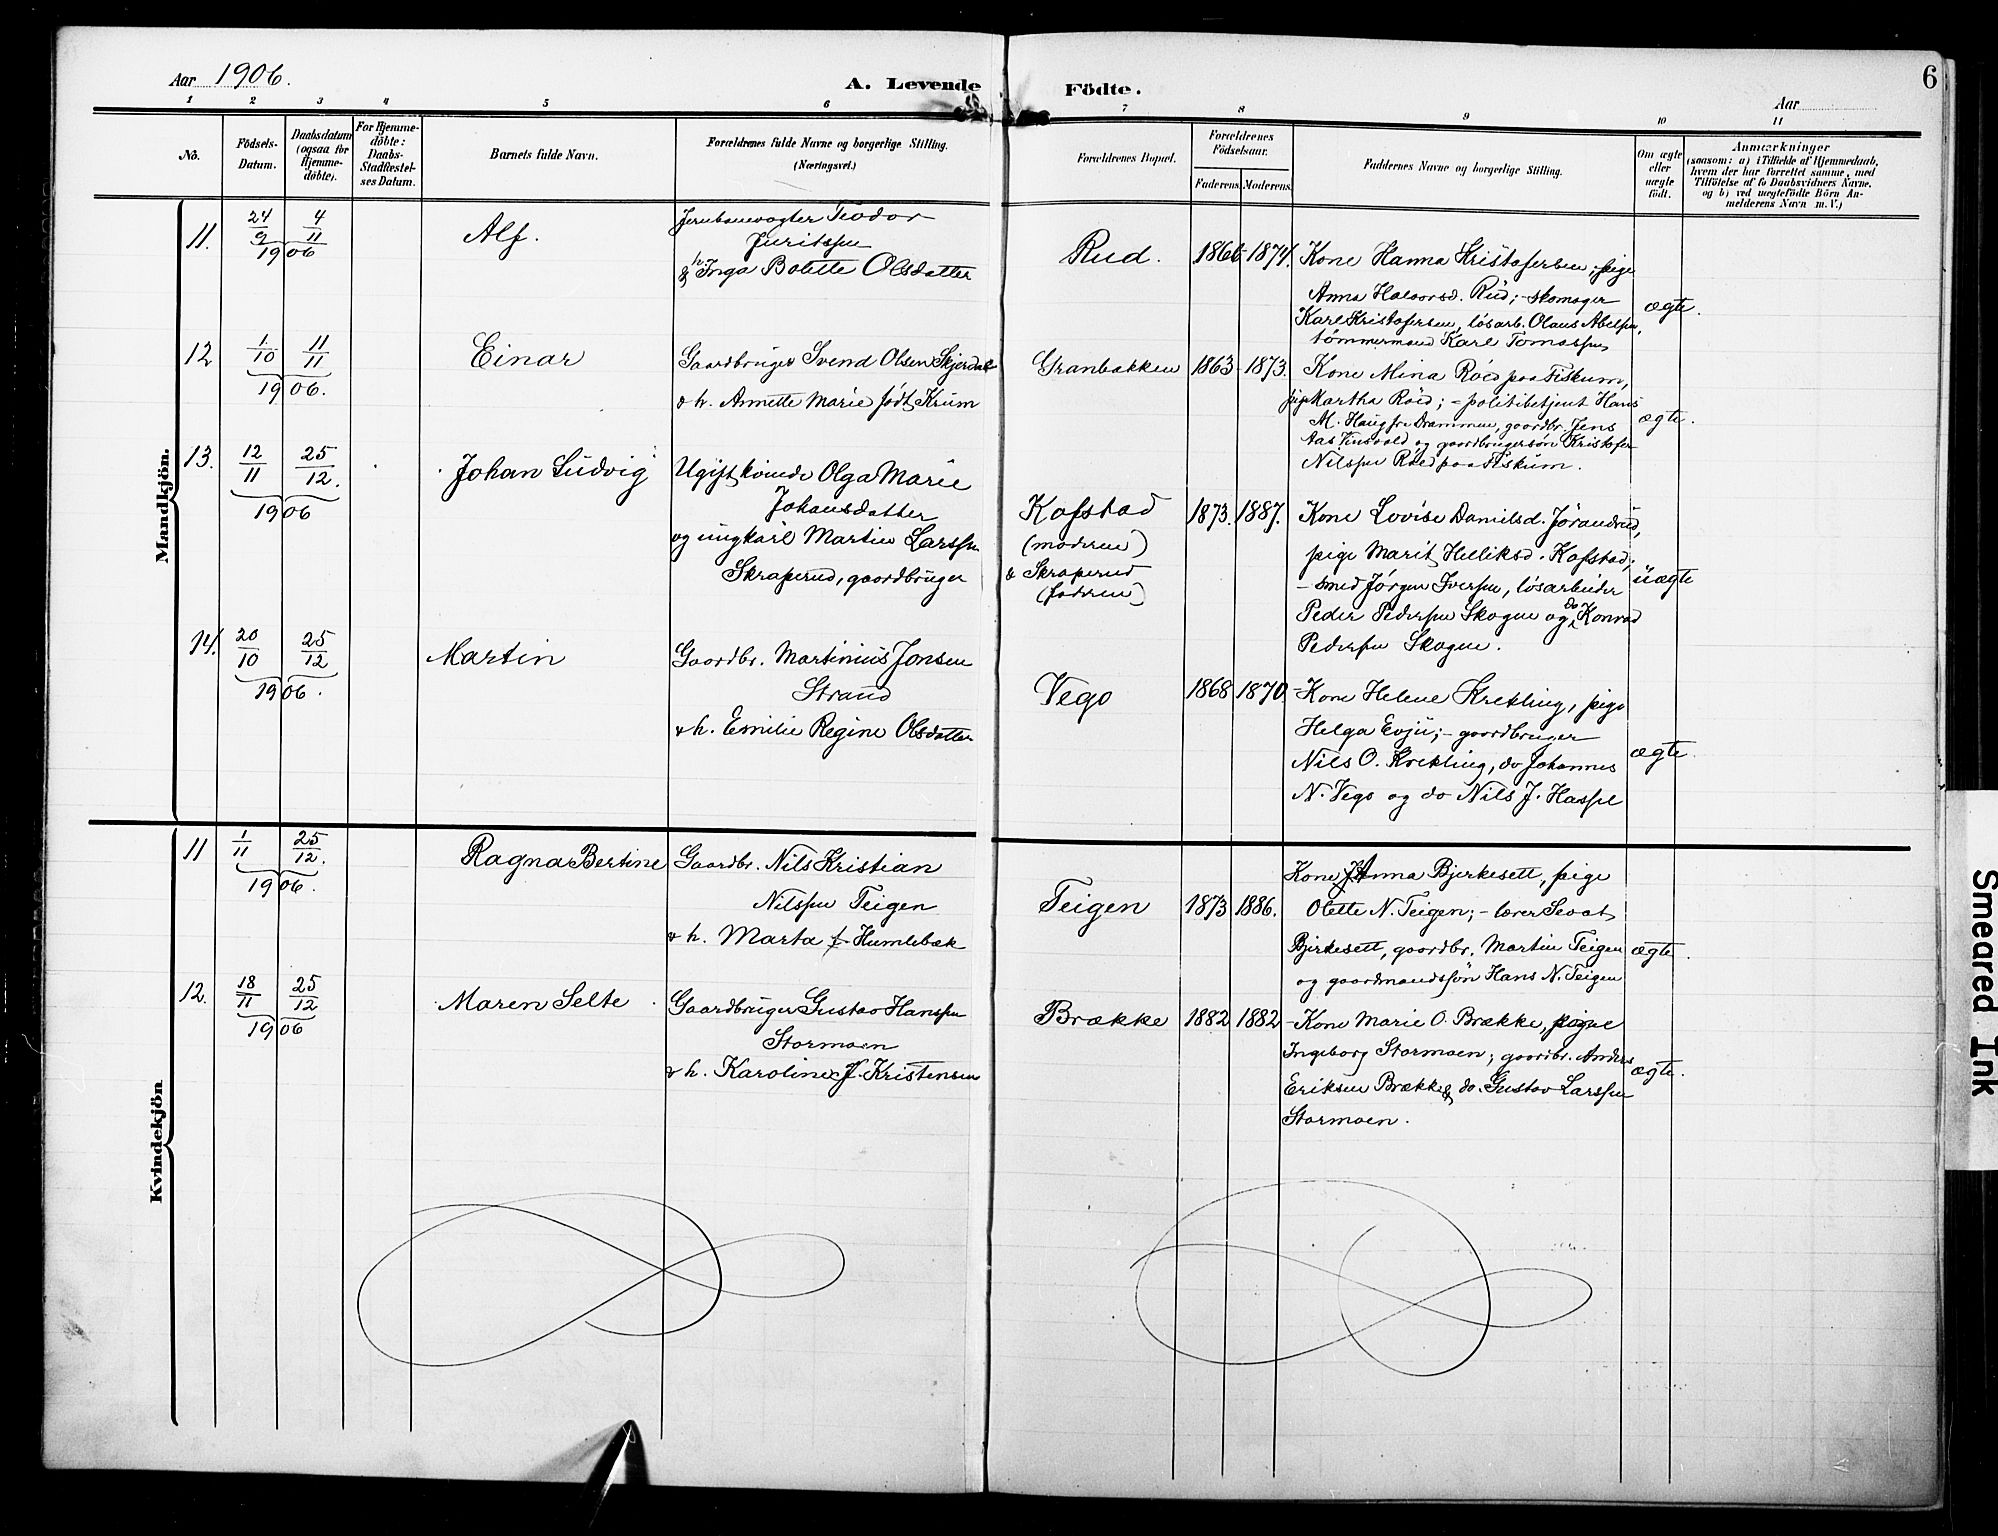 Aar 1906.
A. Levende Födte.
6
Aar
1 2 3 4 5 6 7 8 9 10 11
No.
Födsels-Datum.
Daabsdatum (ogsaa for Hjemme-döbte).
For Hjemme-döbte: Daabs-Stadfæstel-ses Datum.
Barnets fulde Navn.
Forældrenes fulde Navne og borgerlige Stilling. (Næringsvei.)
Forældrenes Bopæl.
Forældrenes Födselsaar.
Faderens. Moderens.
Faddernes Navne og borgerlige Stilling.
Om ægte eller uægte födt.
Anmærkninger
(saasom: a) i Tilfælde af Hjemmedaab,
hvem der har forrettet samme, med
Tilföielse af to Daabsvidners Navne.
og b) ved uægtefödte Börn An-
melderens Navn m. V.)
Mandkjön.
11. 24/9 4/11 1906
Alf.
Jernbanevogter Teodor
Juritssen
& h. Inga Bolette Olsdatter
Rud. 1866 - 1874.
Kone Hanna Kristofersen, pige
Anna Halvorsd. Rud; - skomager
Karl Kristofersen, løsarb. Olaus Abelsen,
tømmermand Karl Tomassen
ægte.
12 1/10 11/11 1906.
Einar
Gaardbruger Svend Olsen Skjerdal
& h. Annette Marie født Krum
Granbakken 1863 - 1873.
Kone Mina Røed paa Fiskum,
pige Martha Røed; - politibetjent Hans
M. Haug fra Drammen, gaardbr. Jens
Aas Vinsvold og gaardbrugersøn Kristofer
Nilssen Røed paa Fiskum.
ægte.
13. 12/11 25/12. 1906
Johan Ludvig
Ugift kvinde Olga Marie
Johansdatter
og ungkarl Martin Larssen
Skraperud, gaardbruger
Kofstad
(moderen)
& Skraperud
(faderen)
1873. 1887.
Kone Lovise Danielsd. Jørandrud,
pige Marit Helliksd. Kofstad;
- smed Jørgen Iversen, løsarbeider
Peder Pedersen Skogen og do Konrad
Pedersen Skogen.
uægte
14. 20/10 25/12 1906.
Martin
Gaardbr. Martinius Jonsen
Strand
& h. Emilie Regine Olsdatter
Vego 1868 1870.
- Kone Helene Krekling, pige
Helga Evju; - gaardbruger
Nils O. Krekling, do Johannes
N. Vego og do Nils J. Hassel
ægte.
Kvindekjön
11 1/11 25/12. 1906.
Ragna Bertine
Gaardbr. Nils Kristian
Nilssen Teigen
& h. Marta f. Humlebæk
Teigen 1873 1886.
Kone Anna Bjerkesett, pige
Olette N. Teigen; - lærer Sevat
Bjerkesett, gaardbr. Martin Teigen
og gaardmandssøn Hans N. Teigen
ægte.
12. 18/11 25/12 1906
Maren Selte
Gaardbruger Gustav Hanssen
Stormoen
& h. Karoline f. Kristensen
Brække 1882 1882
- Kone Marie O. Brække, pige
Ingeborg Stormoen; gaardbr. Anders
Eriksen Brække & do. Gustav Larssen
Stormoen.
ægte.
Smeared Ink